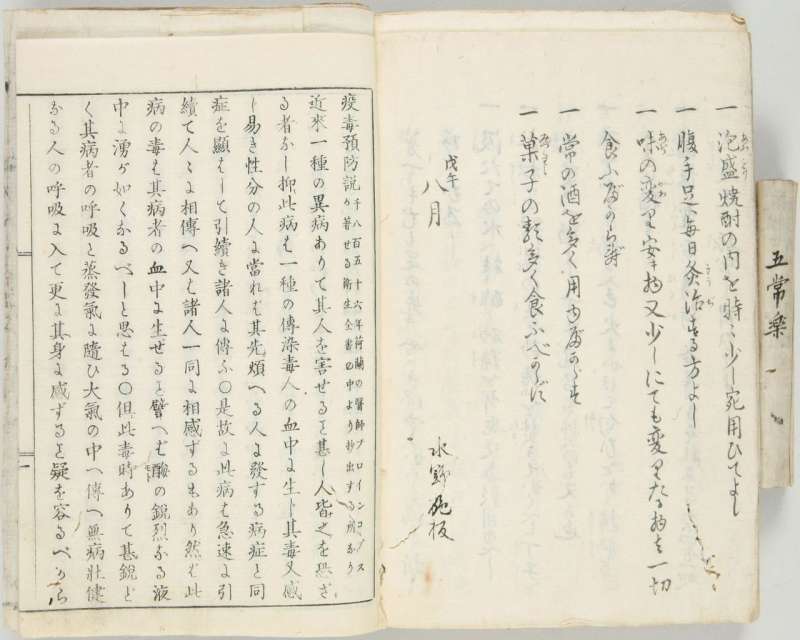 一 泡盛焼酎の内を時々少し宛用ひてよし
一 腹手足へ毎日灸治する方よし
一 味の変り安き物又少しにても変りたる物を一切
食ふべからず
一 常の酒を多く用ゆべからず
一 菓子の類多く食ふべからず
戊午
八月
水野施板
五常楽
疫毒預防説
千八百五十六年荷蘭の醫師フロインコプス
の著せる衛生全書の中より抄出する所なり
近来一種の異病ありて其人を害せると甚し人皆之を恐ざ
る者なし抑此病も一種の傳染毒人の血中に生し其毒又感
し易き性分の人に當れも其先煩へる人に發する病症と同
症を顕もして引續き諸人に傳ふ〇是故に此病も急速に引
續て人々に相傳へ又も諸人一同に相感するもあり然も此
病の毒も其病者の血中に生せると譬へも醸の鋭烈なる液
中に湧が如くなるべしと思もる〇但此毒時ありて甚鋭ど
く其病者の呼吸と蒸發氣に隨ひ大氣の中へ傳へ無病壮健
なる人の呼吸に入て更に其身に感ずると疑を容るべから